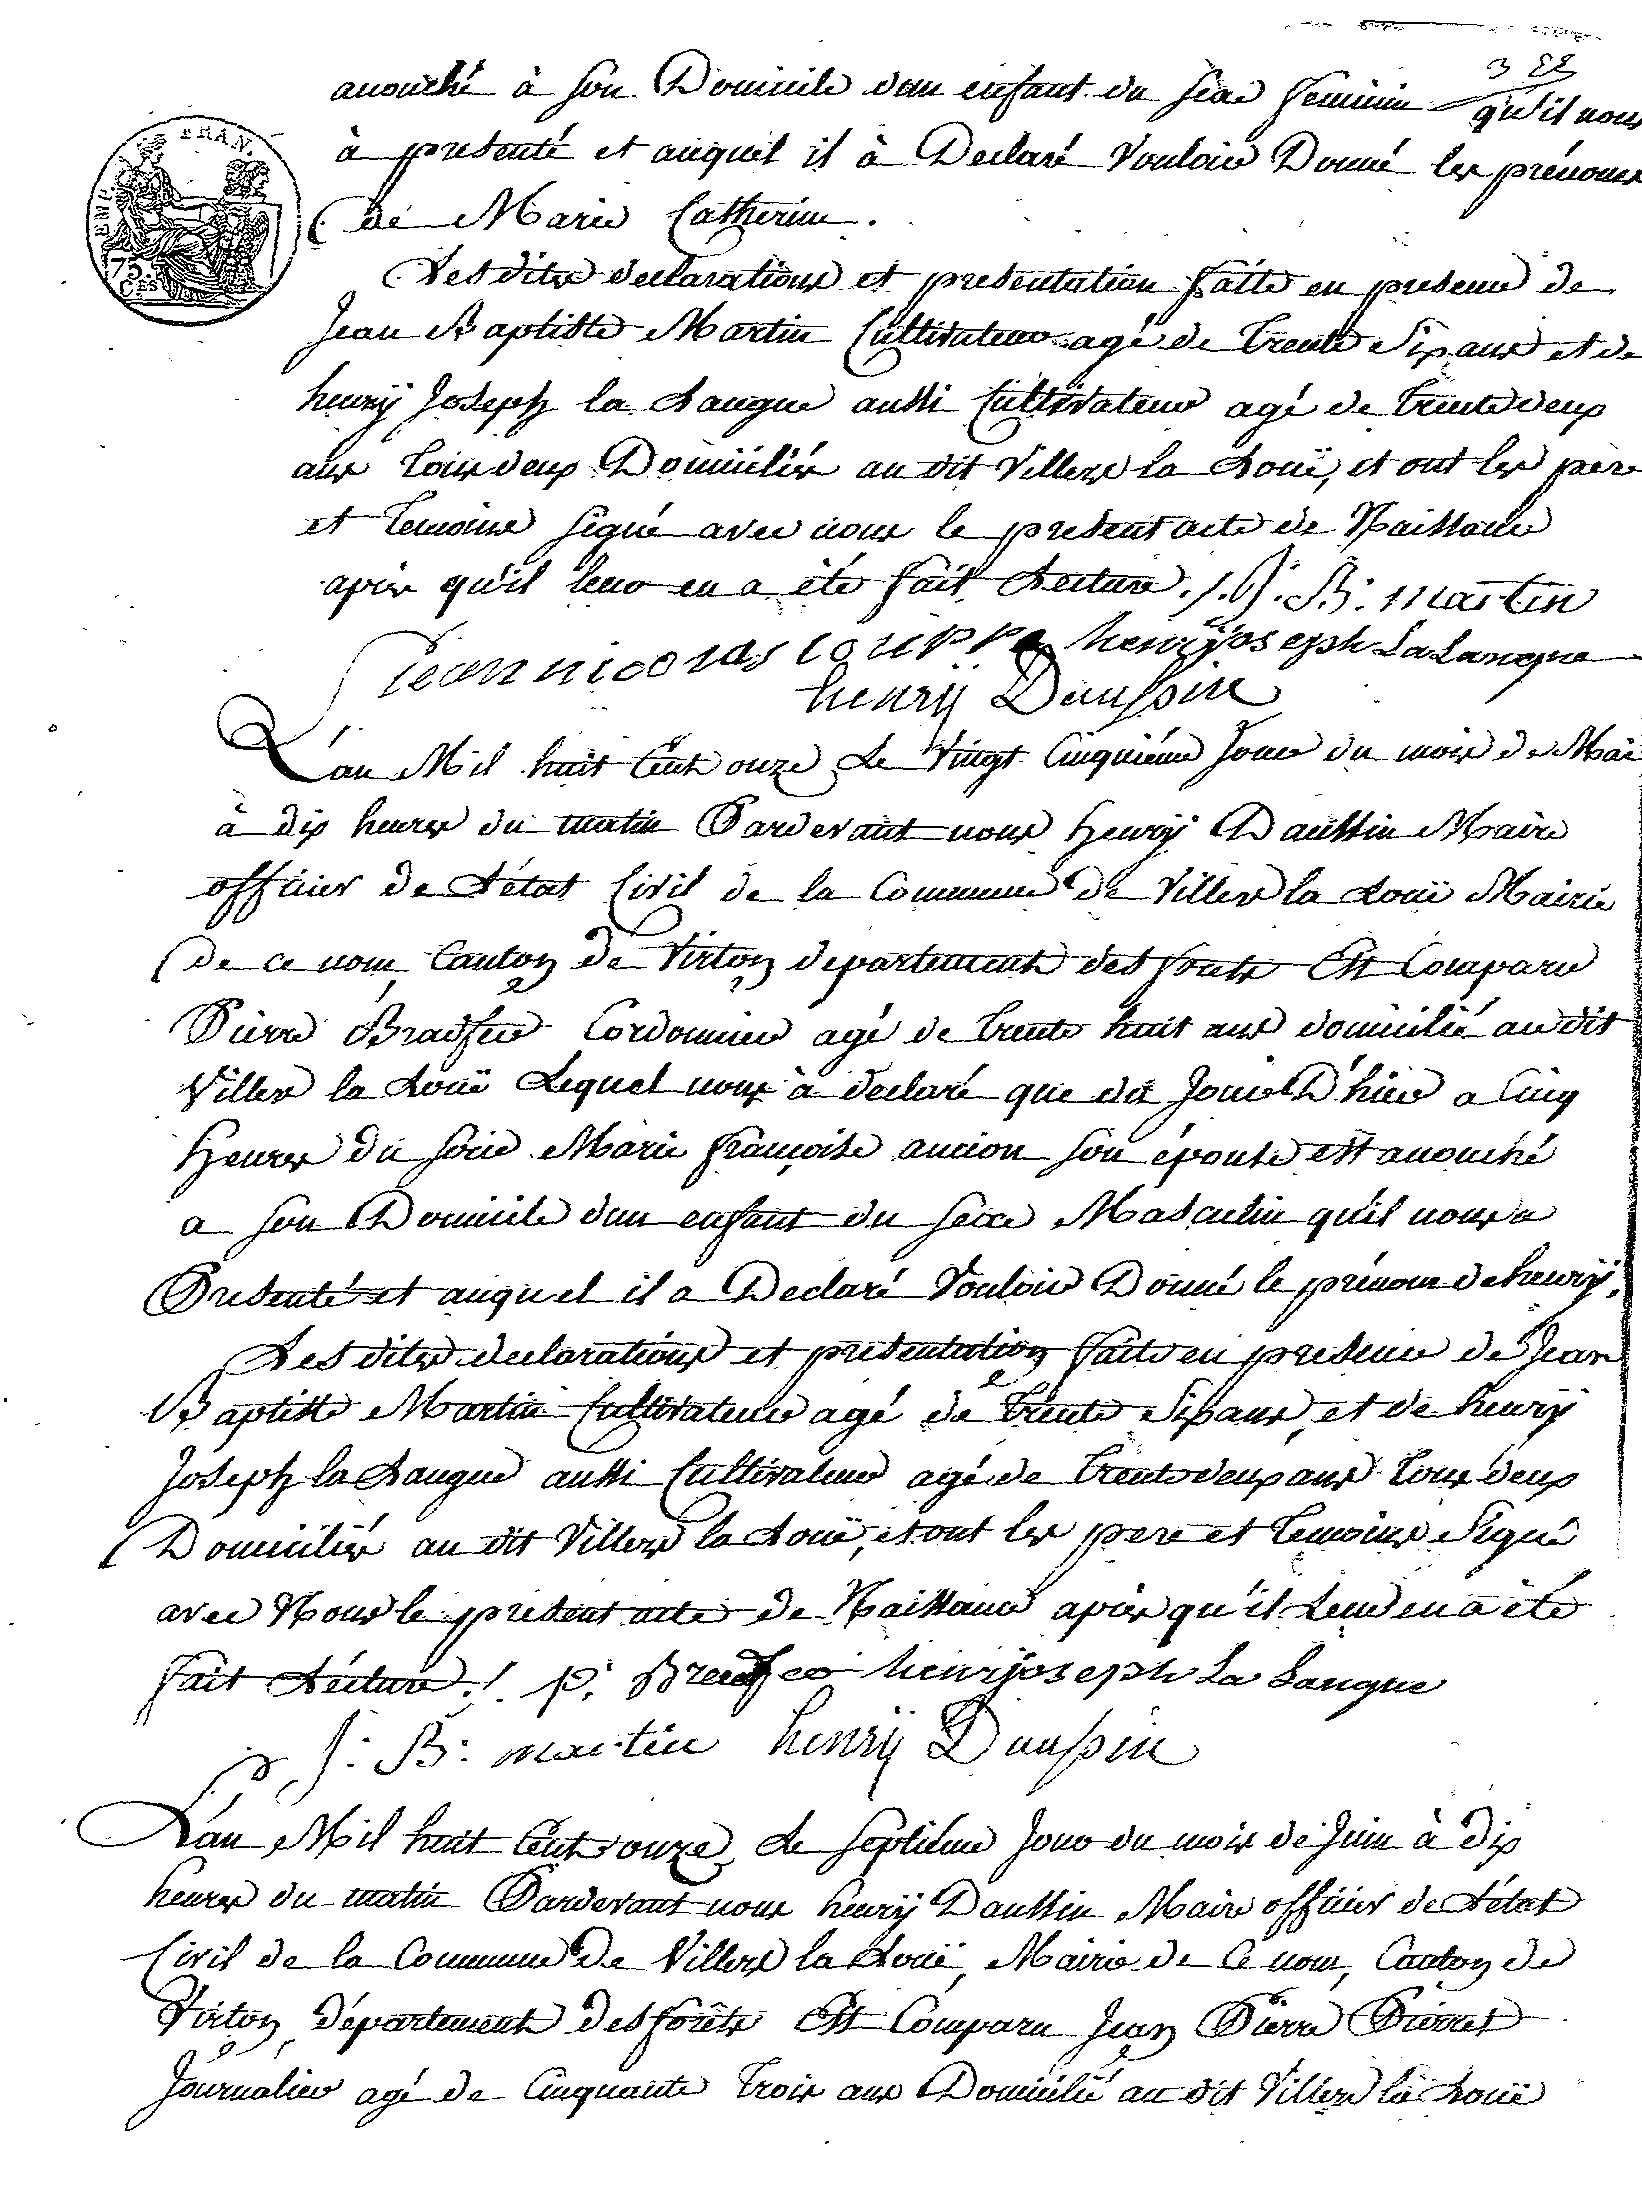 322
accouché à son Domicile dun enfant du sexe feminin qu'il nous
à presenté et auquel il à Declaré Vouloir Donné les prénoms
de Marie Catherine.
EMP. FRAN.
75. Ces
Les dites declarations et presentation faitte en presence de
Jean Baptiste Martin Cultivateur agé de trente Six ans et de
henrÿ Joseph la Langue aussi Cultivateur agé de trente deux
ans tous deux Domiciliés au dit Villers la Loüe, et ont les père
et temoins signé avec nous le present acte de Naissance
après qu'il leur en a été fait Lecture ./. J: B: martin
Jean nicolas henrÿ joseph La Langue
henrÿ Daussin
L'an Mil huit Cent onze Le Vingt Cinquième Jour du mois de Mai
à dix heures du matin Pardevant nous Henrÿ Daussin Maire
officier de L'état Civil de la Commune de Villers la Loüe Mairie
de ce nom, Canton de Virton departement des forets Est Comparu
Pierre Cordonnier agé de trente huit ans domicilié au dit
Villers la Loüe Lequel nous à declaré que du Jour D'hier a Cinq
Heures du soir Marie françoise ancion son épouse est accouché
a son Domicile dun enfant du sexe Masculin qu'il nous a
Presenté et auquel il a Declaré Vouloir Donné le prénom de henrÿ.
Les dites declarations et presentation faite en presence de Jean
Baptiste Martin Cultivateur agé de trente Six ans, et de henrÿ
Joseph la Langue aussi Cultivateur agé de trente deux ans tous deux
Domiciliés au dit Villers la Loüe, et ont les pere et temoins Signé
avec Nous le present acte de Naissance après qu'il Leur en a été
fait Lécture ./. p: henrÿ joseph La Langue
J: B: martin henrÿ Daussin
L'an Mil huit Cent onze, Le septième Jour du mois de Juin à dix
heures du matin Pardevant nous henrÿ Daussin Maire officier de L'état
Civil de la Commune de Villers la Loüe, Mairie de Ce nom, Canton de
Virton, département des forêts Est Comparu Jean Pierre Pierret
Journalier agé de Cinquante trois ans Domicilié au dit Villers la Loüe